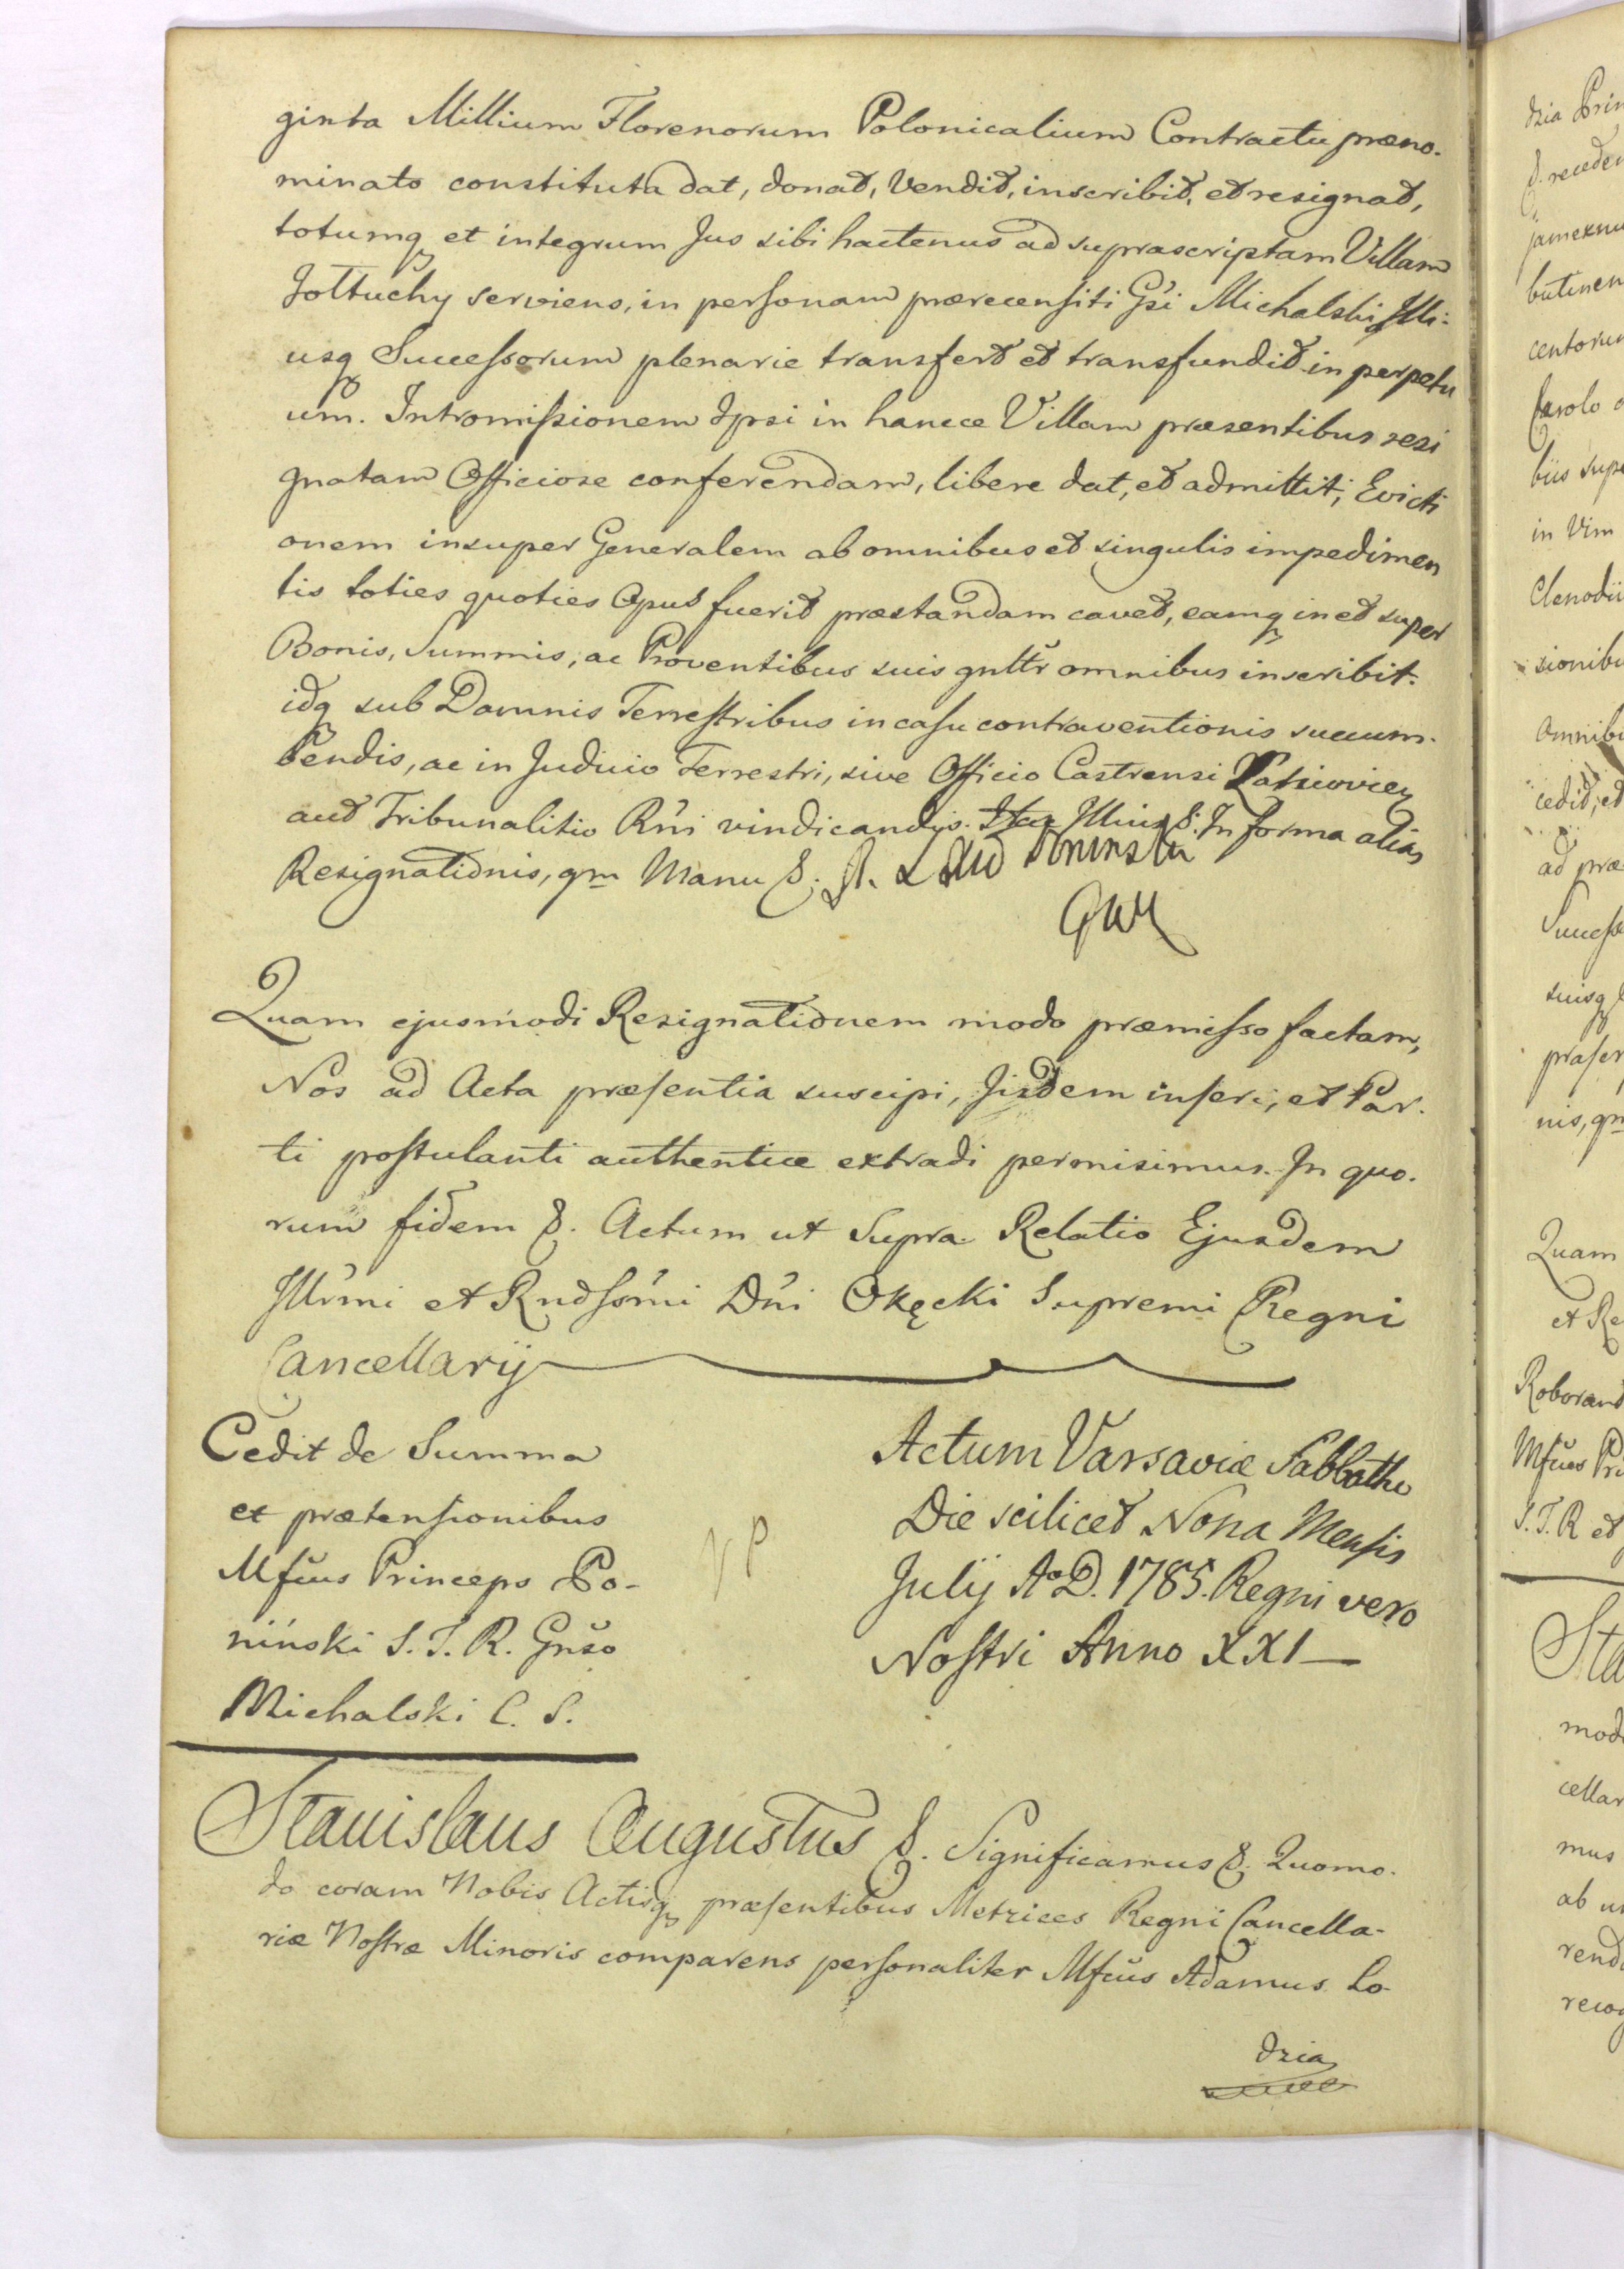 ginta Millium Florenorum Polonicalium Contractu præno-
minato constituta dat, donat, Vendit, inscribit, et resignat,
totumq et integrum Jus sibi hactenus ad suprascriptam Villam
Jottuchy serviens, in personam prærecensiti Gsi Michalski Illi-
usq Successorum plenarie transfert et transfundit in perpetu
um. Intromissionem Ipsi in hancce Villam præsentibus resi
gnatam Officiose conferendam, libere dat, et admittit; Evicti
onem insuper Generalem ab omnibus et singulis impedimen
tis toties quoties Opus fuerit præstandam cavet, eamq in et super
Bonis, Summis, ac Proventibus suis gnltr omnibus inscribit.
idq sub Damnis Terrestribus in casu contraventionis succum-
bendis, ac in Judicio Terrestri, sive Officio Castrensi
aut Tribunalitio Rni vindicandis. Illius &. In forma alias
Resignationis, qm Manu &. A.
Quam ejusmodi Resignationem modo præmisso factam,
Nos ad Acta præsentia suscipi, Iisdem inseri, et Par-
ti postulanti authentice extradi permisimus. In quo-
rum fidem &. Actum ut Supra. Relatio Ejusdem
Illrmi et Rndssmi Dni Okęcki Supremi Regni
Cancellarij
Cedit de Summa
et prætensionibus
Mfcus Princeps Po-
niński S. T. R. Gnso
Michalski C. S.
Actum Varsaviæ Sabbatho
Die scilicet Nona Mensis
Julij Ao D. 1785. Regni vero
Nostri Anno XXI
Stanislaus Augustus &. Significamus &. Quomo-
do coram Nobis Actisq præsentibus Metrices Regni Cancella-
riæ Nostræ Minoris comparens personaliter Mfcus Adamus Lo-
dzia